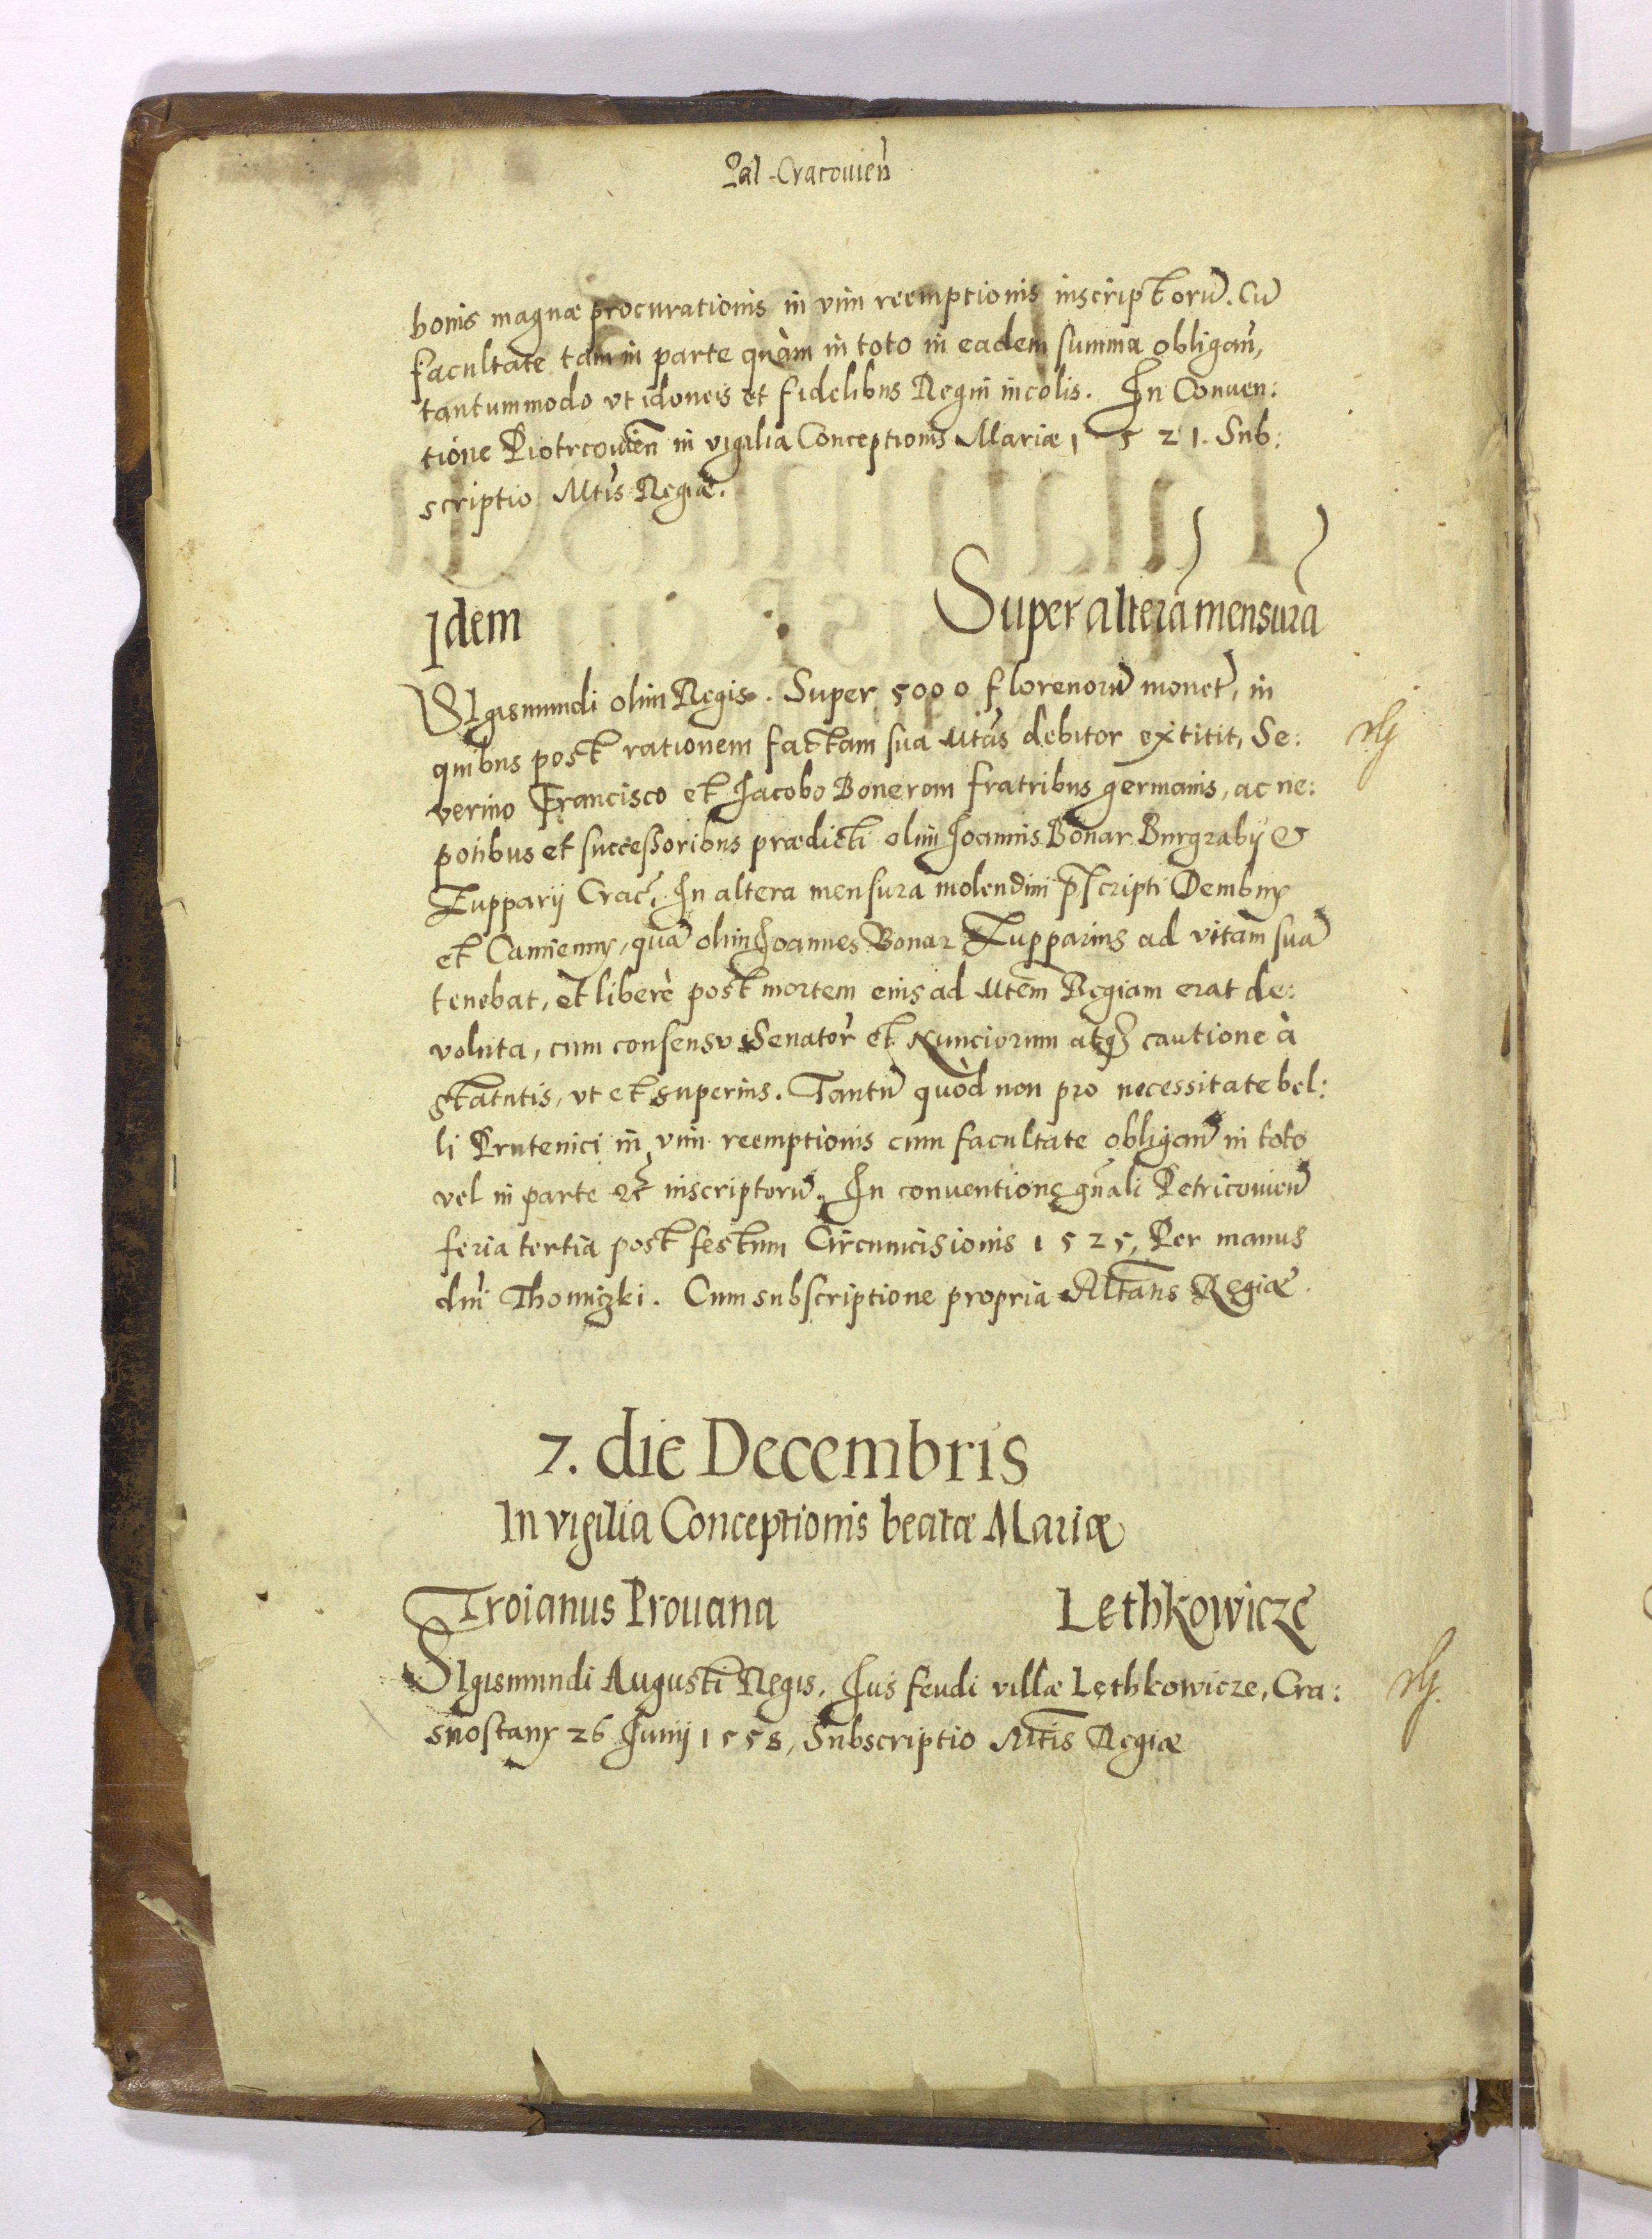 Pal-Cracouien̄
bonis magnæ procurationis in vim reemptionis inscriptorū. Cū
facultate tam in parte quàm in toto in eadem summa obligan̄,
tantummodo vt idoneis et fidelibus Regni incolis. In Conuen:
tione Piotrcouien̄ in vigilia Conceptionis Mariæ 1521. Sub:
scriptio Mtis Regiæ.
Idem Super alterā mensurā
SIgismundi olim Regis. Super 5000 florenorū monet, in
quibus post rationem factam sua Mtas debitor extitit, Se:
verino Francisco et Iacobo Bonerom fratribus germanis, ac ne:
potibus et successoribus prædicti olim Ioannis Bonar Burgrabij &
Zupparij Crac̄, In altera mensura molendini p̄scripti Dembny
et Camienny, quā olim Ioannes Bonar Zupparius ad vitam suā
tenebat, et liberè post mortem eius ad Mtem Regiam erat de:
voluta, cum consensu Senator̄ et Nunciorum atq3 cautione à
statutis, vt et superius. Tantū quòd non pro necessitate bel:
li Prutenici in vim reemptionis cum facultate obligan̄ in toto
vel in parte etc̄ inscriptorū. In conuentione gn̄ali Petricouien̄
feria tertia post festum Circumcisionis 1525, Per manus
dn̄i Thomiczki. Cum subscriptione propria Mtatis Regiæ.
7. die Decembris
In vigilia Conceptionis beatæ Mariæ
Troianus Prouana Lethkowicze
SIgismundi Augusti Regis. Ius feudi villæ Lethkowicze, Cra:
snostany 26 Iunij 1558, Subscriptio Mtis Regiæ